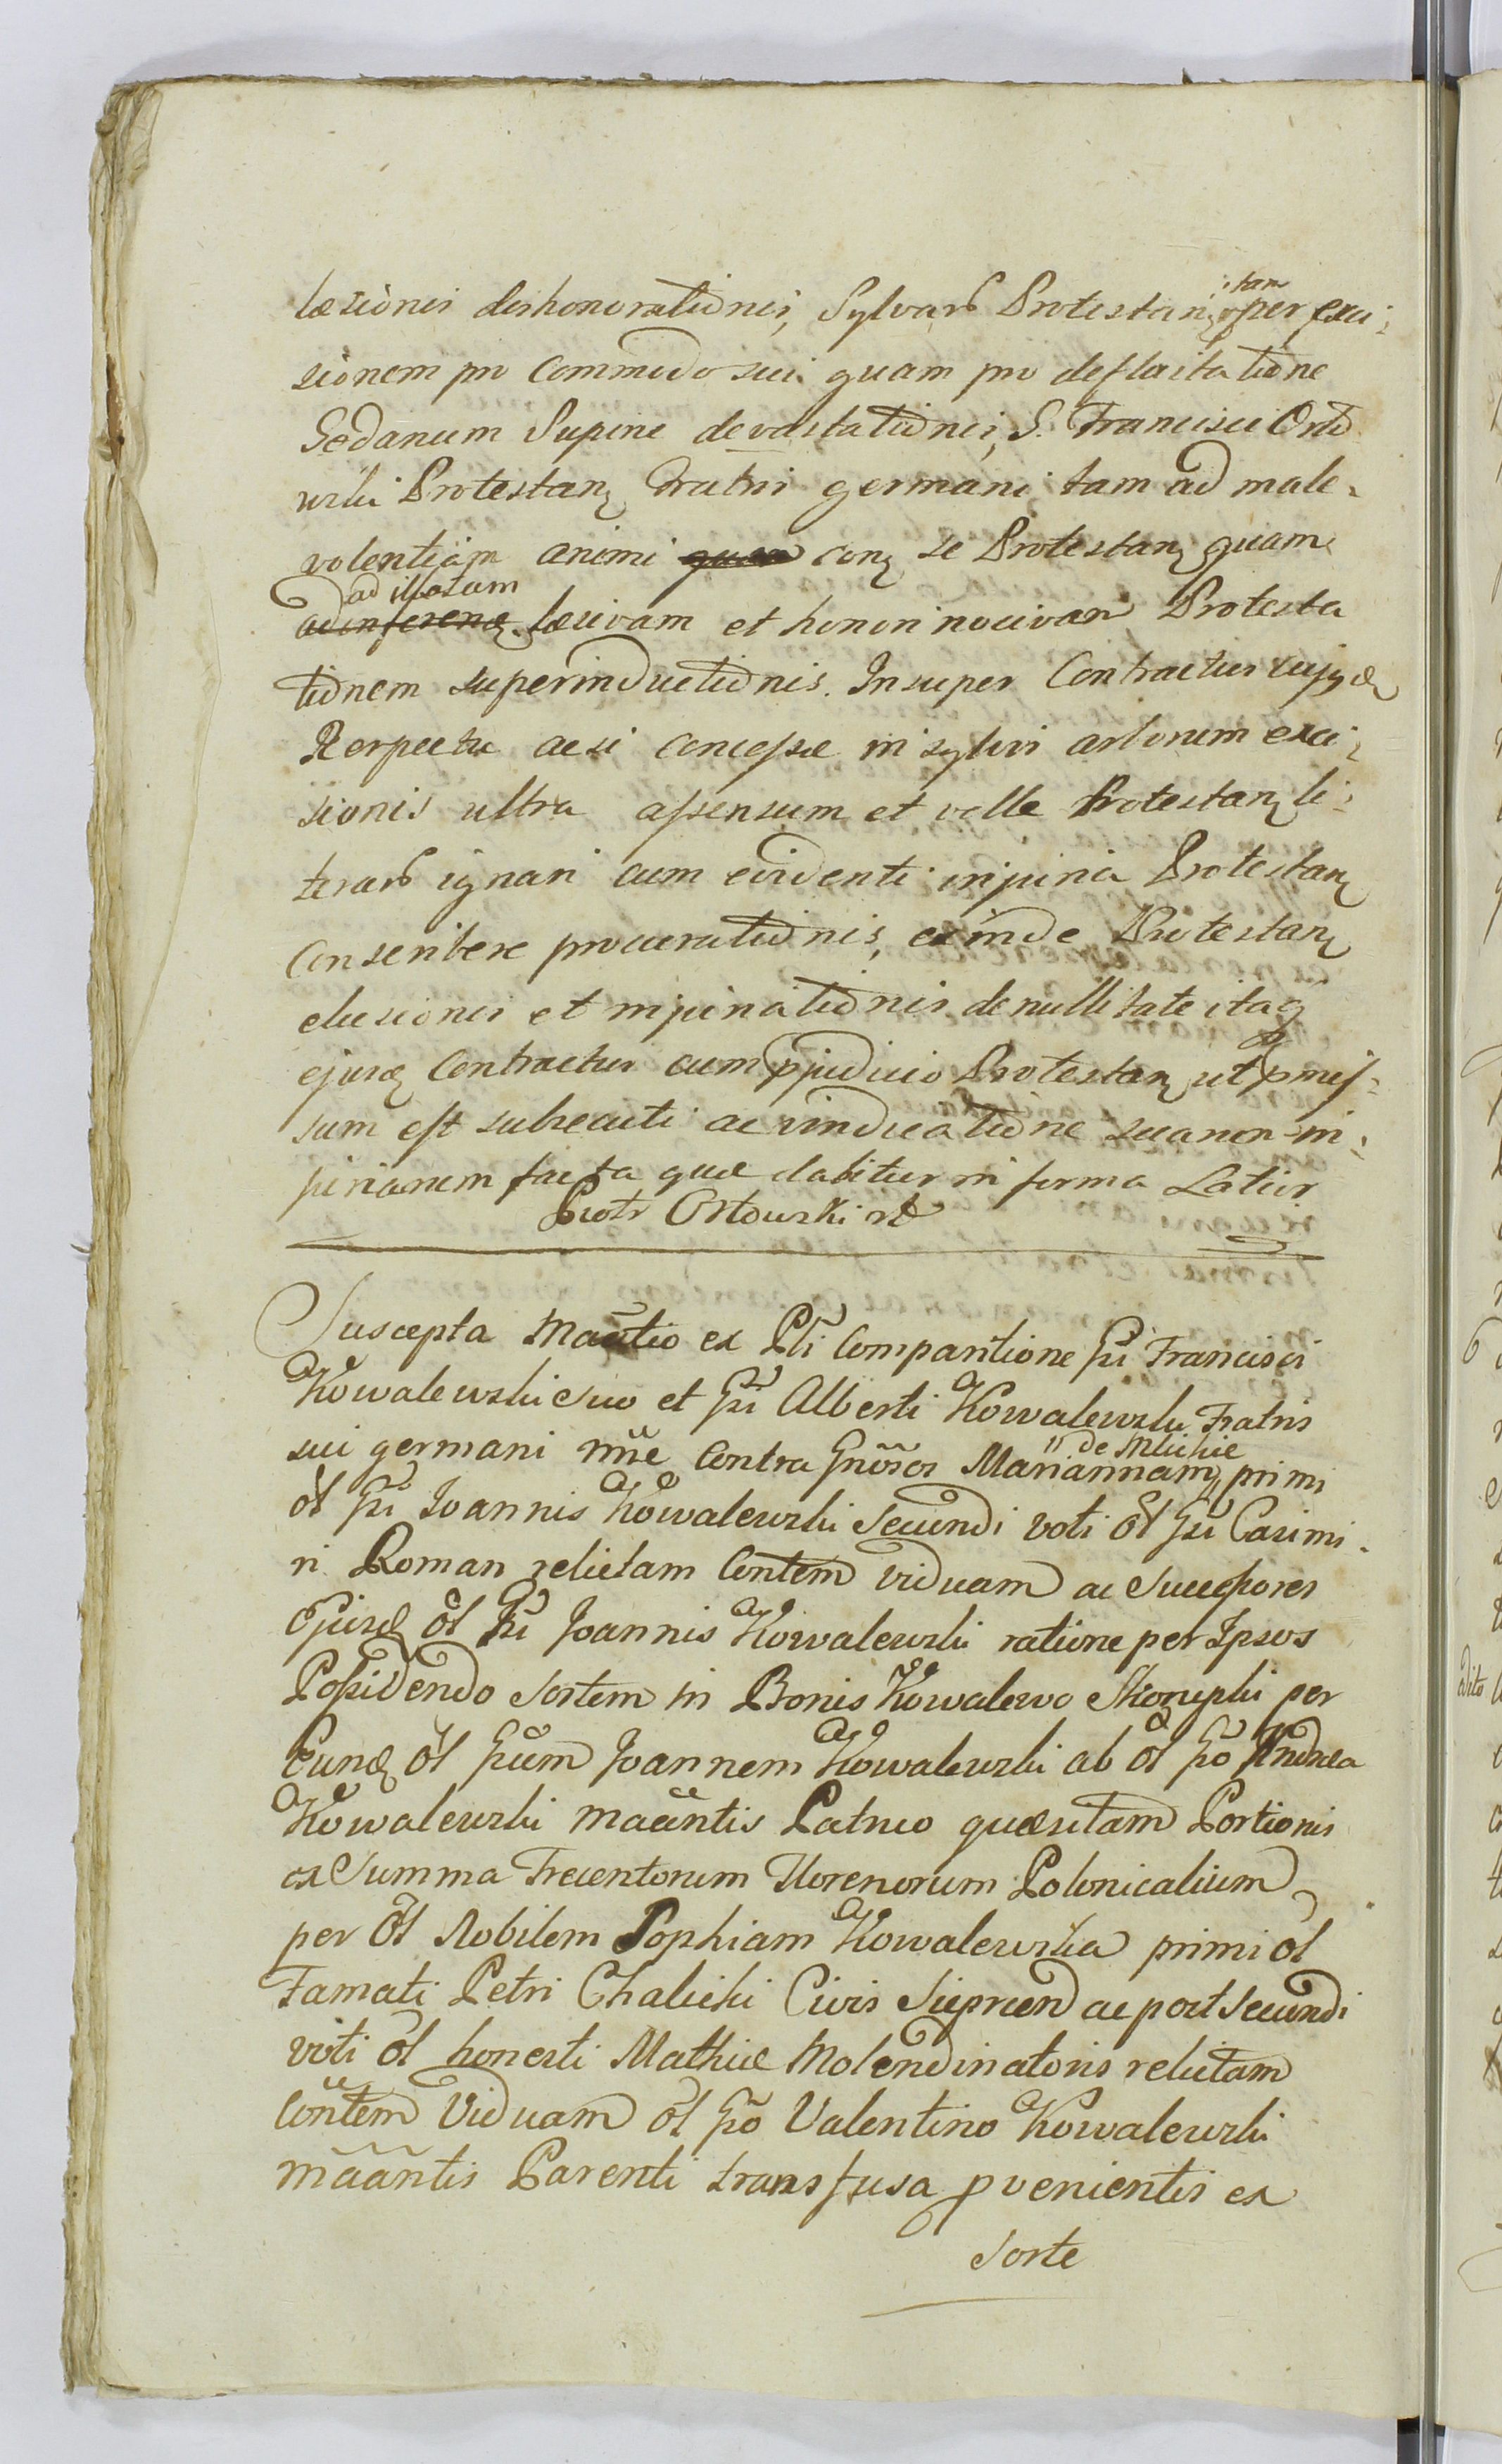 læsionis deshonorationis, Sylvarũ Protestanꝫ tam per exci-
sionem pro commodo sui quam pro defluitatione
Gedanum Supine devastationis, G. Francisci Orło
wski Protestanꝫ Fratris germani tam ad male-
volentiam animi conꝫ se Protestanꝫ quam
ad illatam læsivam et honori nocivam Protesta
tionem superinductionis. Insuper Contractus cujusdꝫ
Respectu acsi concessæ in sylvis arborum exci-
sionis ultra assensum et velle Protestanꝫ li-
terarũ ignari cum evidenti injuria Protestanꝫ
conscribere procurationis, exinde Protestanꝫ
elusionis et injuriationis de nullitate itaq
ejusdꝫ Contractus cum pjudicio Protestanꝫ ut pmis-
sum est subsecuti ac vindicatione sua non in-
juriarum facta quæ dabitur in forma Latior
Piotr Orłowski
Suscepta Mañtio ex Pti Comparitione Gsi Francisci
Kowalewski Suo et Gsi Alberti Kowalewski Fratris
sui germani nñe Contra Gñosos Mariannam de Mlickie primi
ol Gsi Joannis Kowalewski Secundi voti ol Gsi Casimi-
ri Roman relictam Contem viduam ac Successores
Ejusdꝫ ol Gsi Joannis Kowalewski ratione per Ipsos
Possidendo Sortem in Bonis Kowalewo Skorupki per
Eundꝫ ol Gsum Joannem Kowalewski ab ol Gso Andrea
Kowalewski mañntis Patruo quæsitam Portionis
ex Summa Trecentorum Florenorum Polonicalium
per ol Nobilem Sophiam Kowalewska primi ol
Famati Petri Chalicki Civis Sieprcen ac post Secundi
voti ol honesti Mathiæ Molendinatoris relictam
Coñtem Viduam ol Gso Valentino Kowalewski
mããntis Parenti transfusa pvenientis ex
Sorte